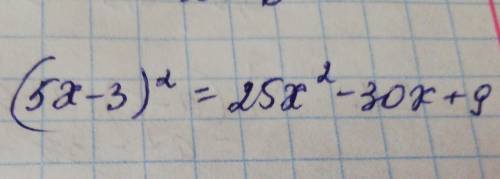 (5x-3)² = 25x²-30x+9